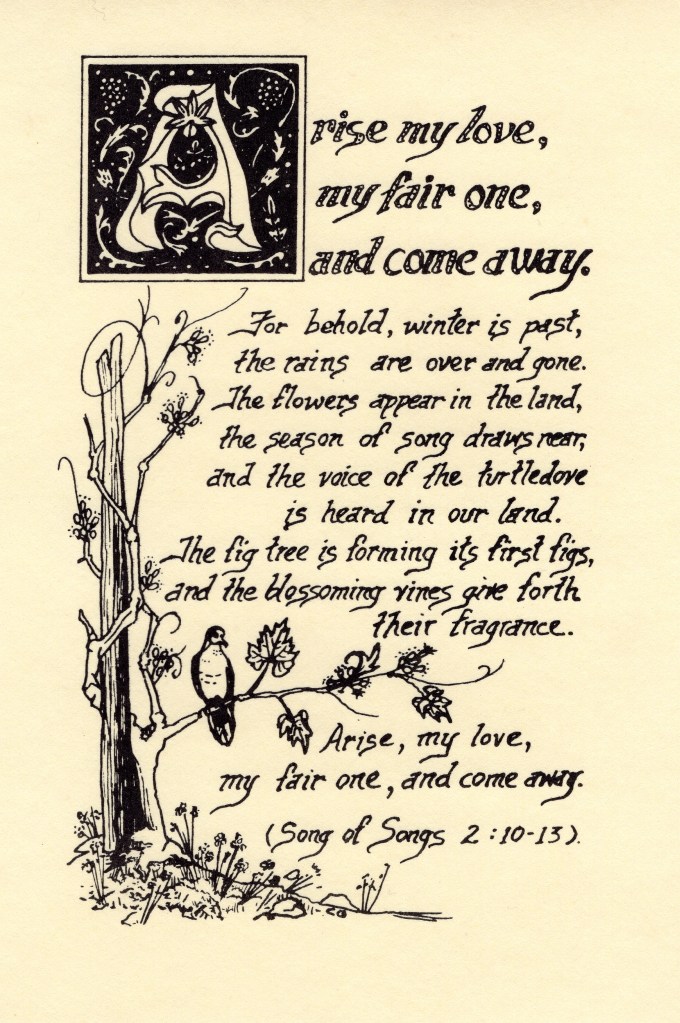 Arise my love,
my fair one,
and come away.
For behold, winter is past,
the rains are over and gone.
The flowers appear in the land,
the season of song draws near,
and the voice of the turtledove
is heard in our land.
The fig tree is forming its first figs,
and the blossoming vines give forth
their fragrance.
Arise, my love,
my fair one, and come away.
(Song of Songs 2:10-13).